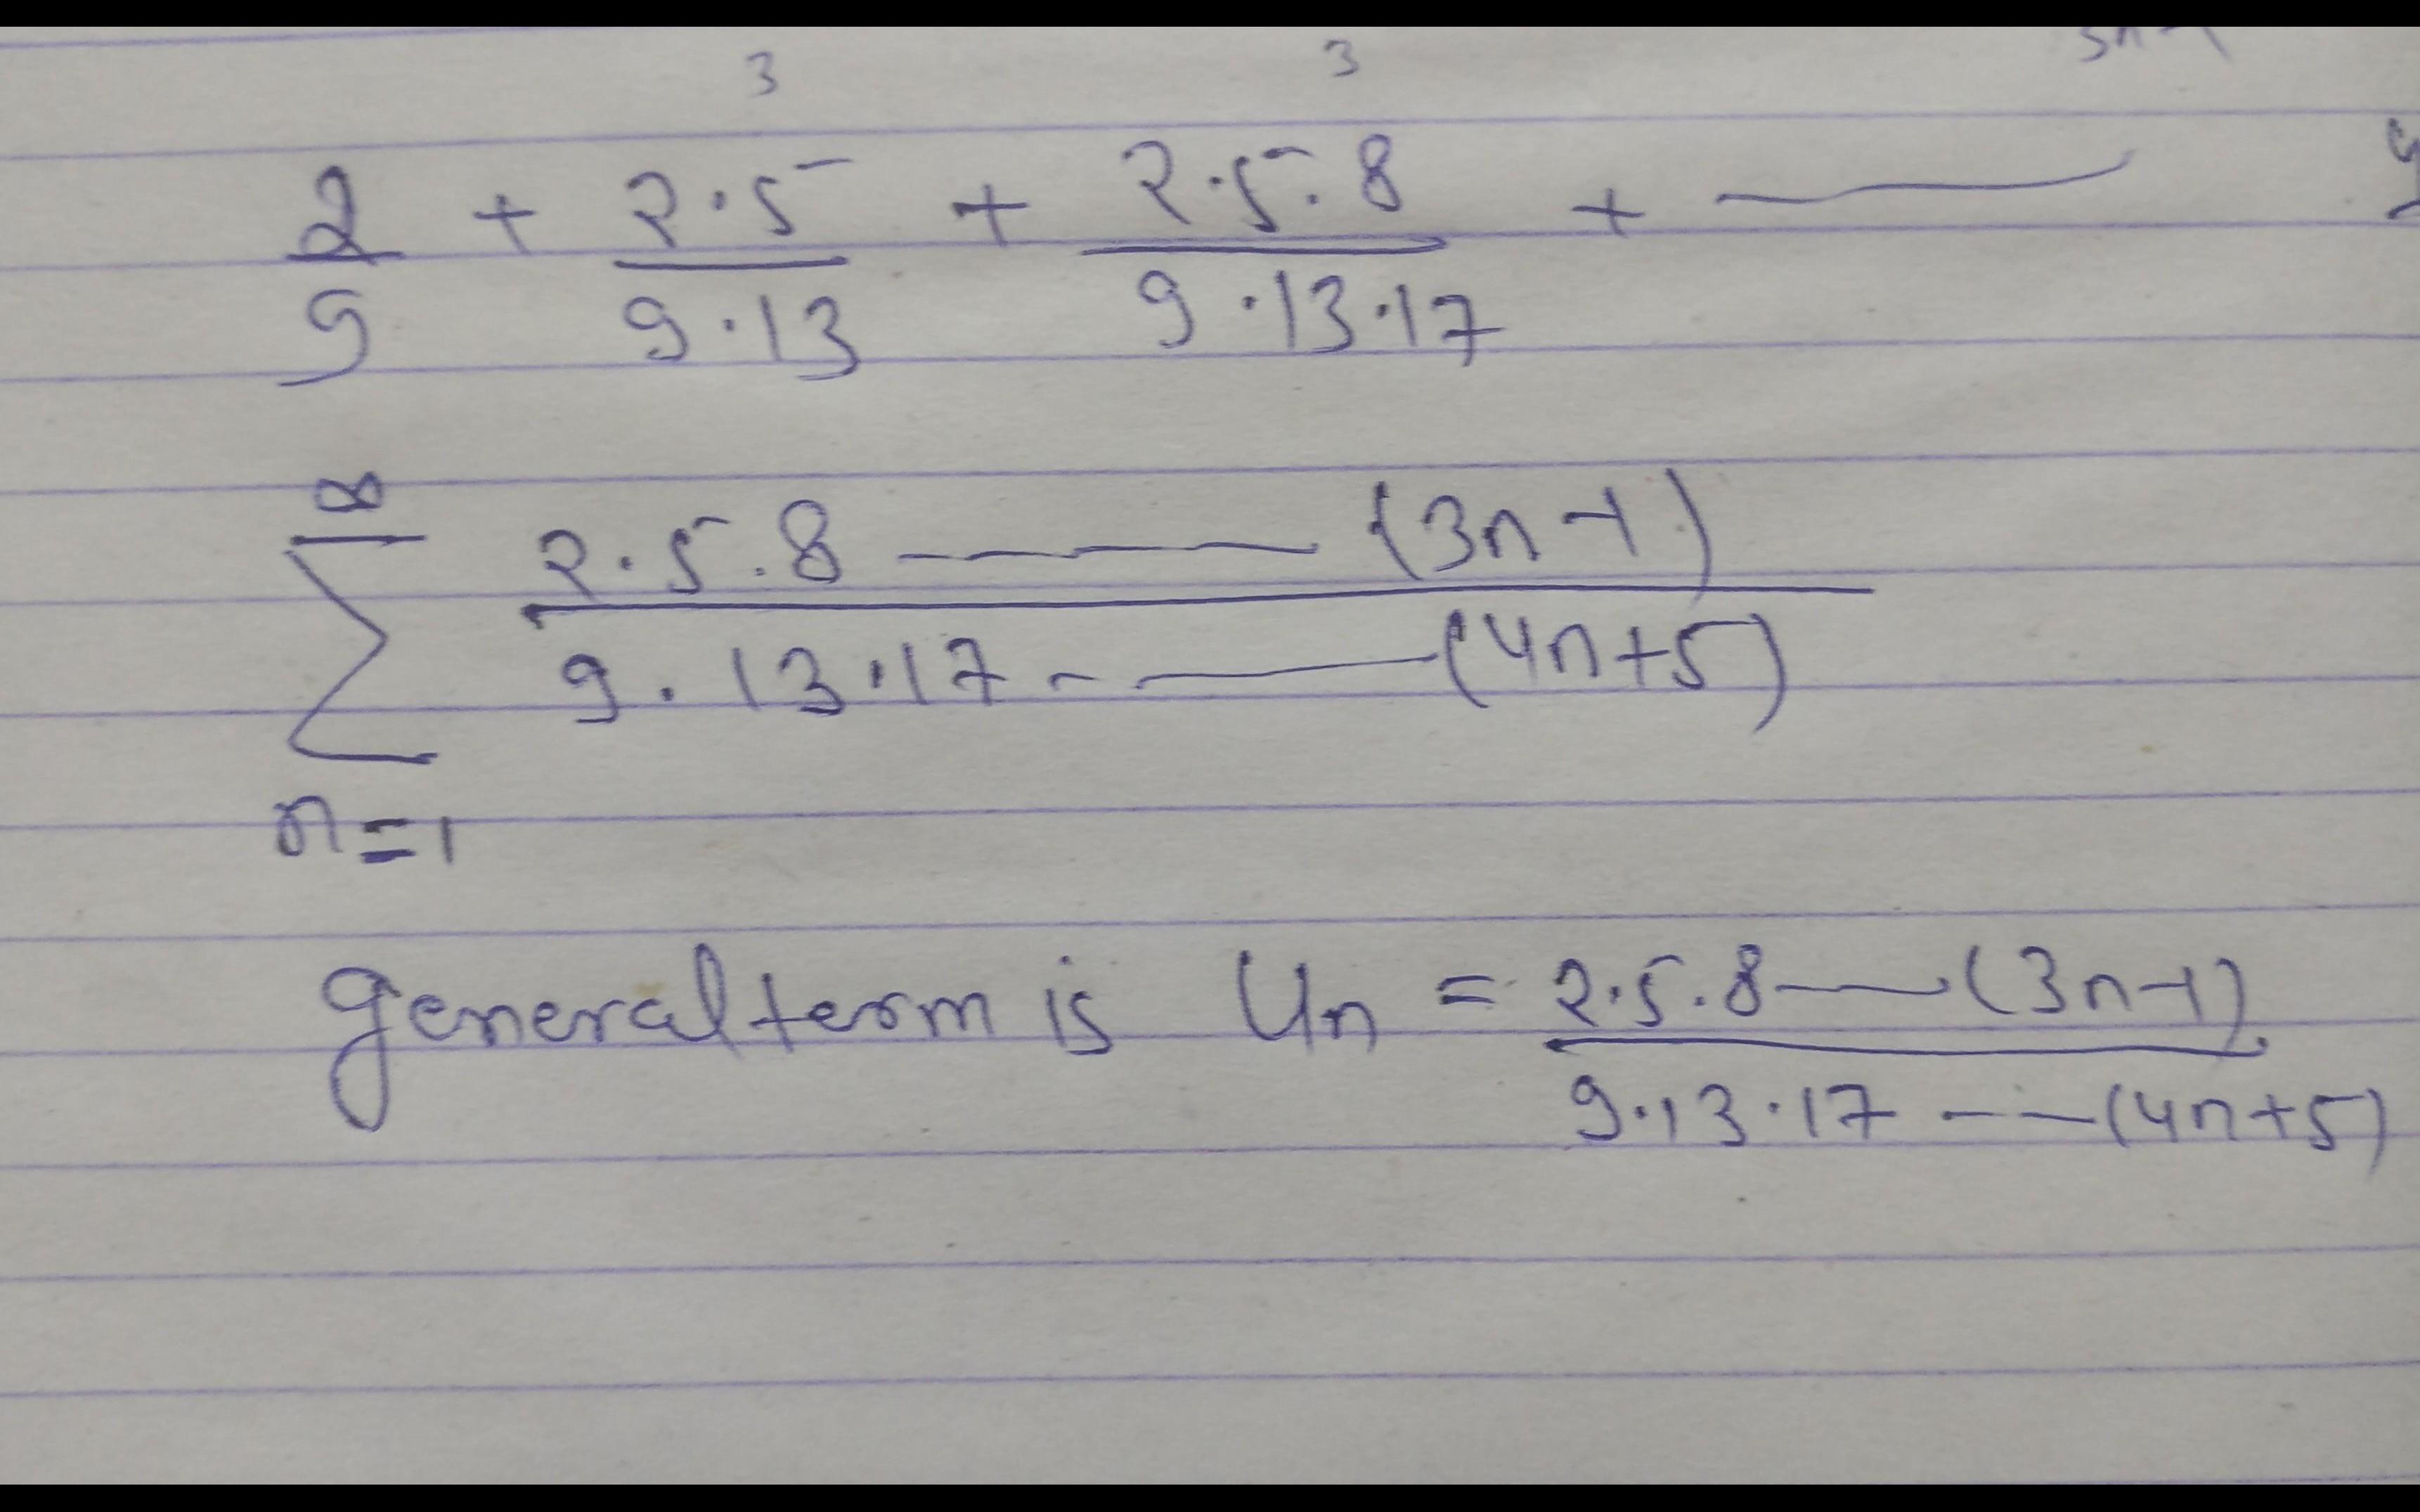 3 3
2/9 + 2·5/9·13 + 2·5·8/9·13·17 + ———
∞
∑ 2·5·8 ———— (3n-1) / 9·13·17 ———— (4n+5)
n=1
general term is Un = 2·5·8 —— (3n-1) / 9·13·17 --— (4n+5)